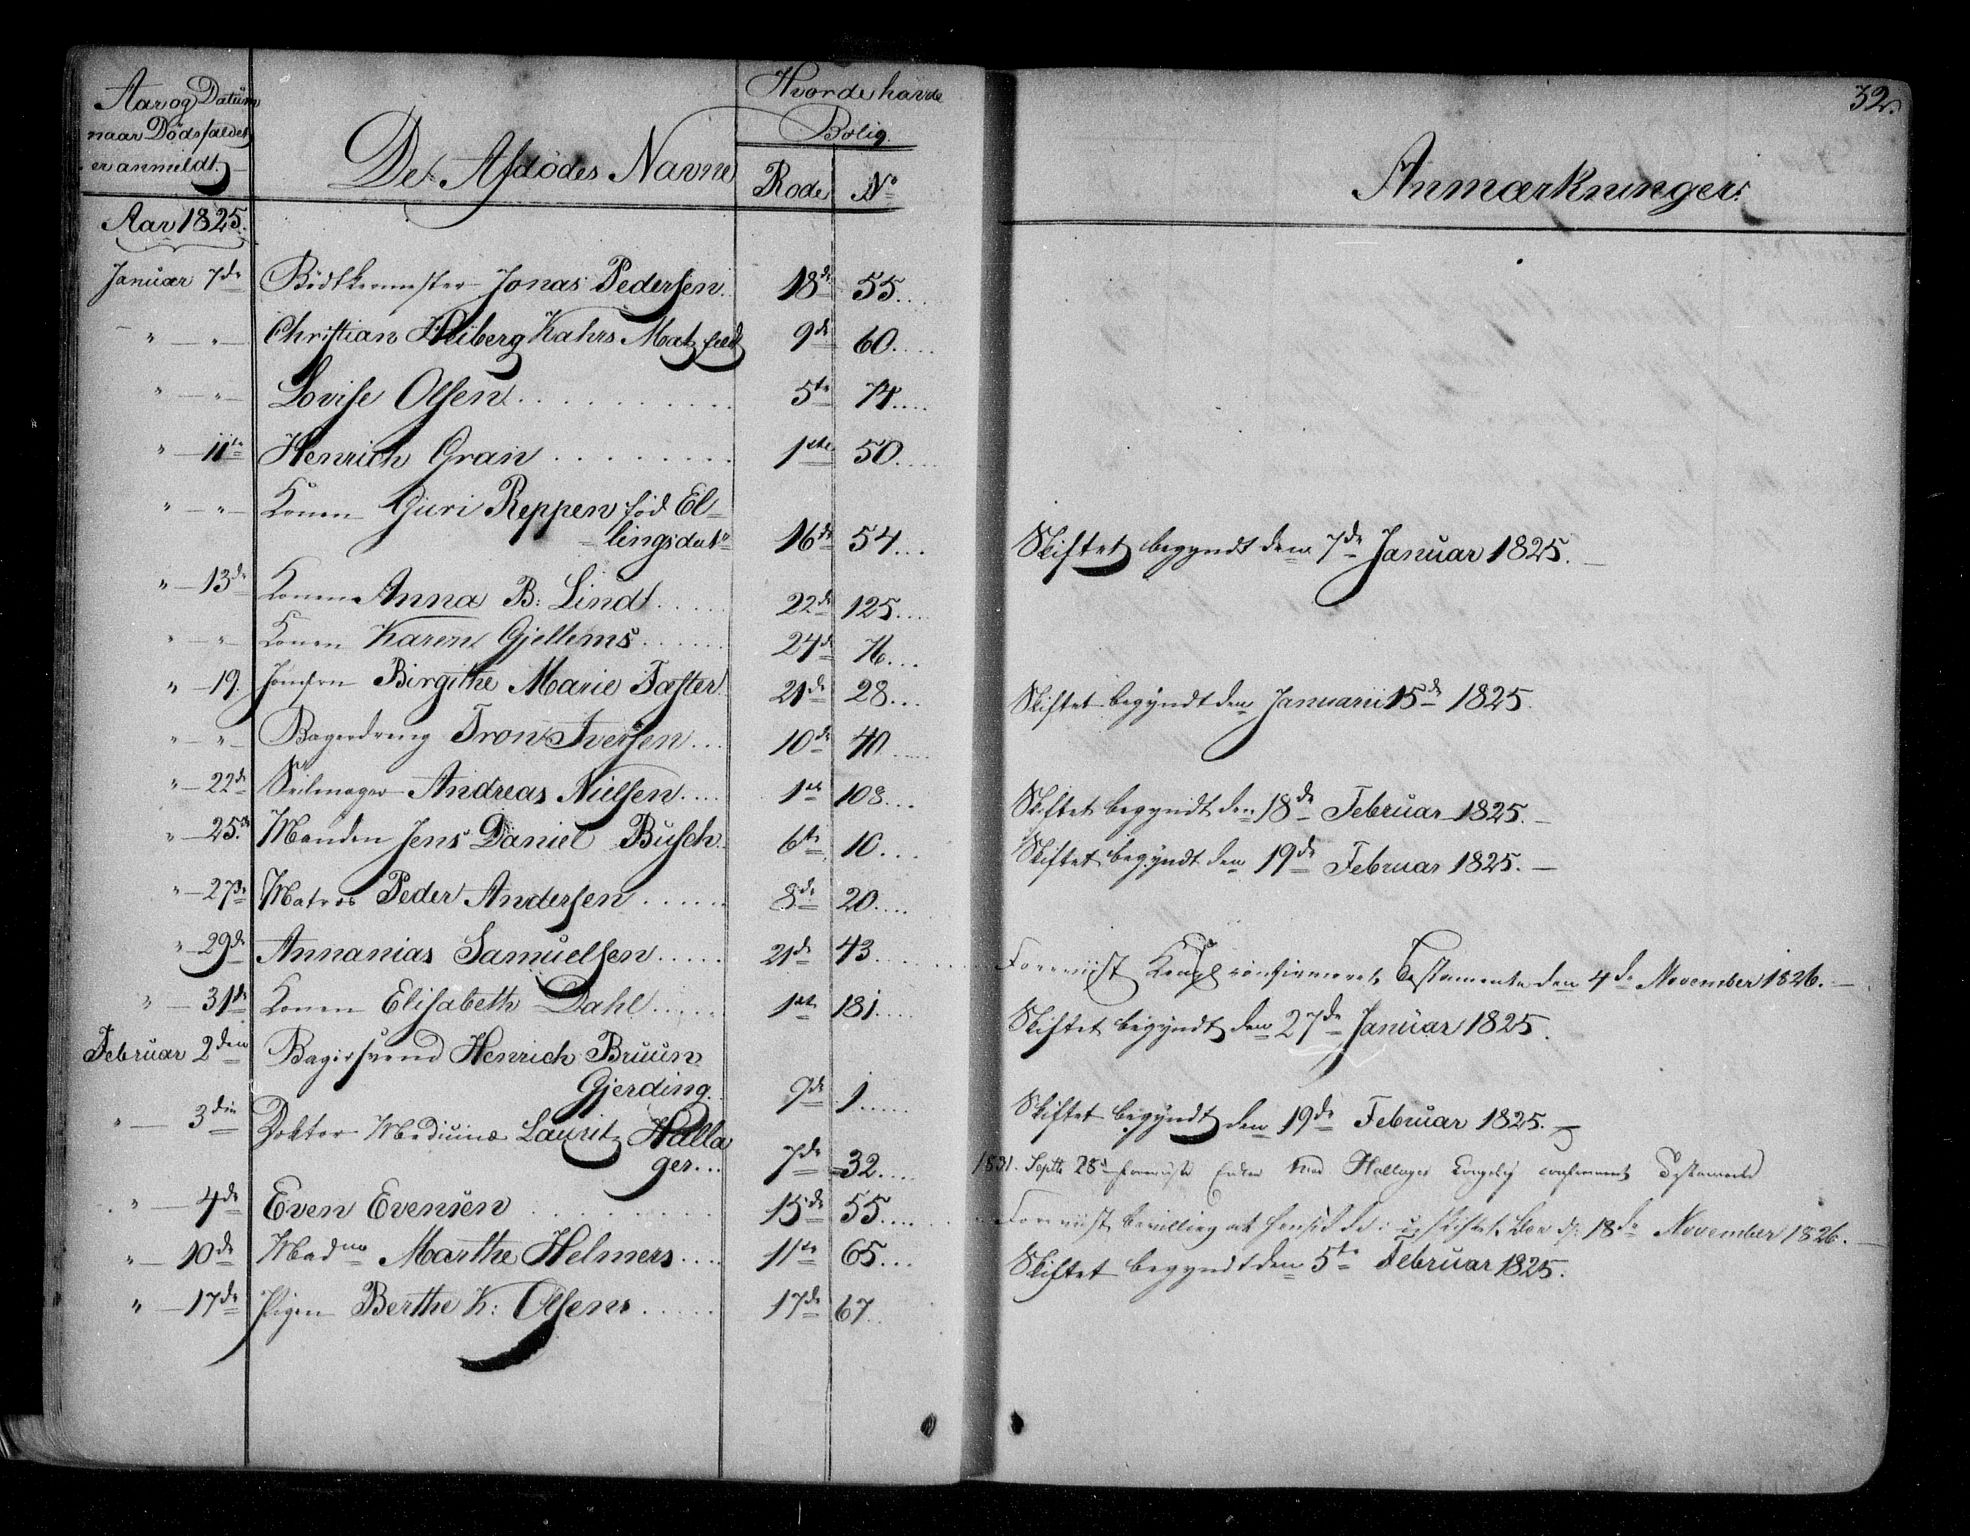 32.
Aar og Datum
naar Dödsfaldet
er anmeldt.
De Afdödes Navne
Hvor de havde
Bolig.
Rode No
Anmærkninger.
Aar 1825.
Januar 7de Bödtkermester Jonas Pedersen 18de 55.
" — " — Christian Heiberg Kahrs Matzfeldt 9de 60.
" — " — Lovise Olsen 5te 74.
" — 11te Henrich Gran 1ste 50.
" — " — Konen Guri Reppen föd El-
lingsdatr 16de 54. Skiftet begyndt den 7de Januar 1825.
" — 13de Konen Anna B: Lindt 22de 125.
" — " Konen Karen Gjeltems 24de 76.
" — 19. Jomfru Birgithe Marie Fæster 21de 28. Skiftet begyndt den Januarii 15de 1825.
" — " — Bagerdreng Tron Iversen 10de 40.
" — 22de Seilmager Andreas Nielsen 1ste 108. Skiftet begyndt den 18de Februar 1825.
" — 25de Manden Jens Daniel Busch 6te 10. Skiftet begyndt den 19de Februar 1825.
" — 27de Matros Peder Andersen 8de 20.
" — 29de Annanias Samuelsen 21de 43. Foreviist Kongl confirmeret Testamente den 4de November 1826.
" — 31de Konen Elisabeth Dahl 1ste 181. Skiftet begyndt den 27de Januar 1825.
Februar 2den Bagersvend Henrich Bruun
Gjerding 9de 1. Skiftet begyndt den 19de Februar 1825.
" — 3die Doktor Medicinæ Lauritz Halla
ger 7de 32. 1831. Septb 28de foreviiste Enken Mad Hallager Kongelig confirmeret Testamente
" — 4de Even Evensen 15de 55. Foreviist bevilling at hensidde i uskiftet Boe 18de November 1826.
" — 10de Madme Marthe Helmers 11te 65. Skiftet begyndt den 5te Februar 1825.
" — 17de Pigen Berthe K: Olsens 17de 67.